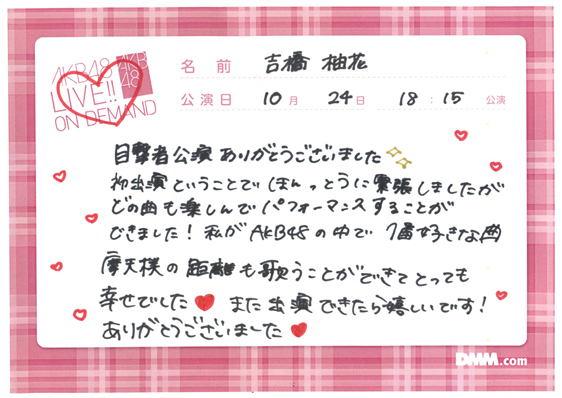 AKB48
LIVE!!
ON DEMAND
AKB
48
名前 吉橋 柚花
公演日 10月 24日 18:15 公演
目撃者公演ありがとうございました
初出演ということでほんっとうに緊張しましたが
どの曲も楽しんでパフォーマンスすることが
できました!私がAKB48の中で1番好きな曲
摩天楼の距離も歌うことができてとっても
幸せでした また出演できたら嬉しいです!
ありがとうございました
DMM.com